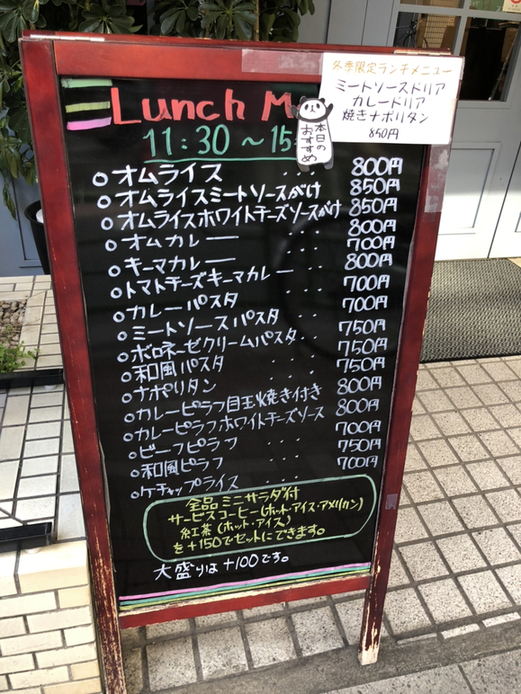 冬季限定ランチメニュー
ミートソースドリア
カレードリア
焼きナポリタン
850円
Lunch M
本日の
おすすめ
11:30～15
○オムライス ... 800円
○オムライスミートソースがけ 850円
○オムライスホワイトチーズソースがけ 850円
○オムカレー ... 800円
○キーマカレー ... 700円
○トマトチーズキーマカレー ... 800円
○カレーパスタ ... 700円
○ミートソースパスタ ... 700円
○ボロネーゼクリームパスタ ... 750円
○和風パスタ ... 750円
○ナポリタン ... 750円
○カレーピラフ目玉焼き付き 800円
○カレーピラフホワイトチーズソース 800円
○ビーフピラフ ... 700円
○和風ピラフ ... 750円
○ケチャップライス ... 700円
全品ミニサラダ付
サービスコーヒー(ホット・アイス・アメリカン)
紅茶(ホット・アイス)
を+150でセットにできます。
大盛りは+100です。